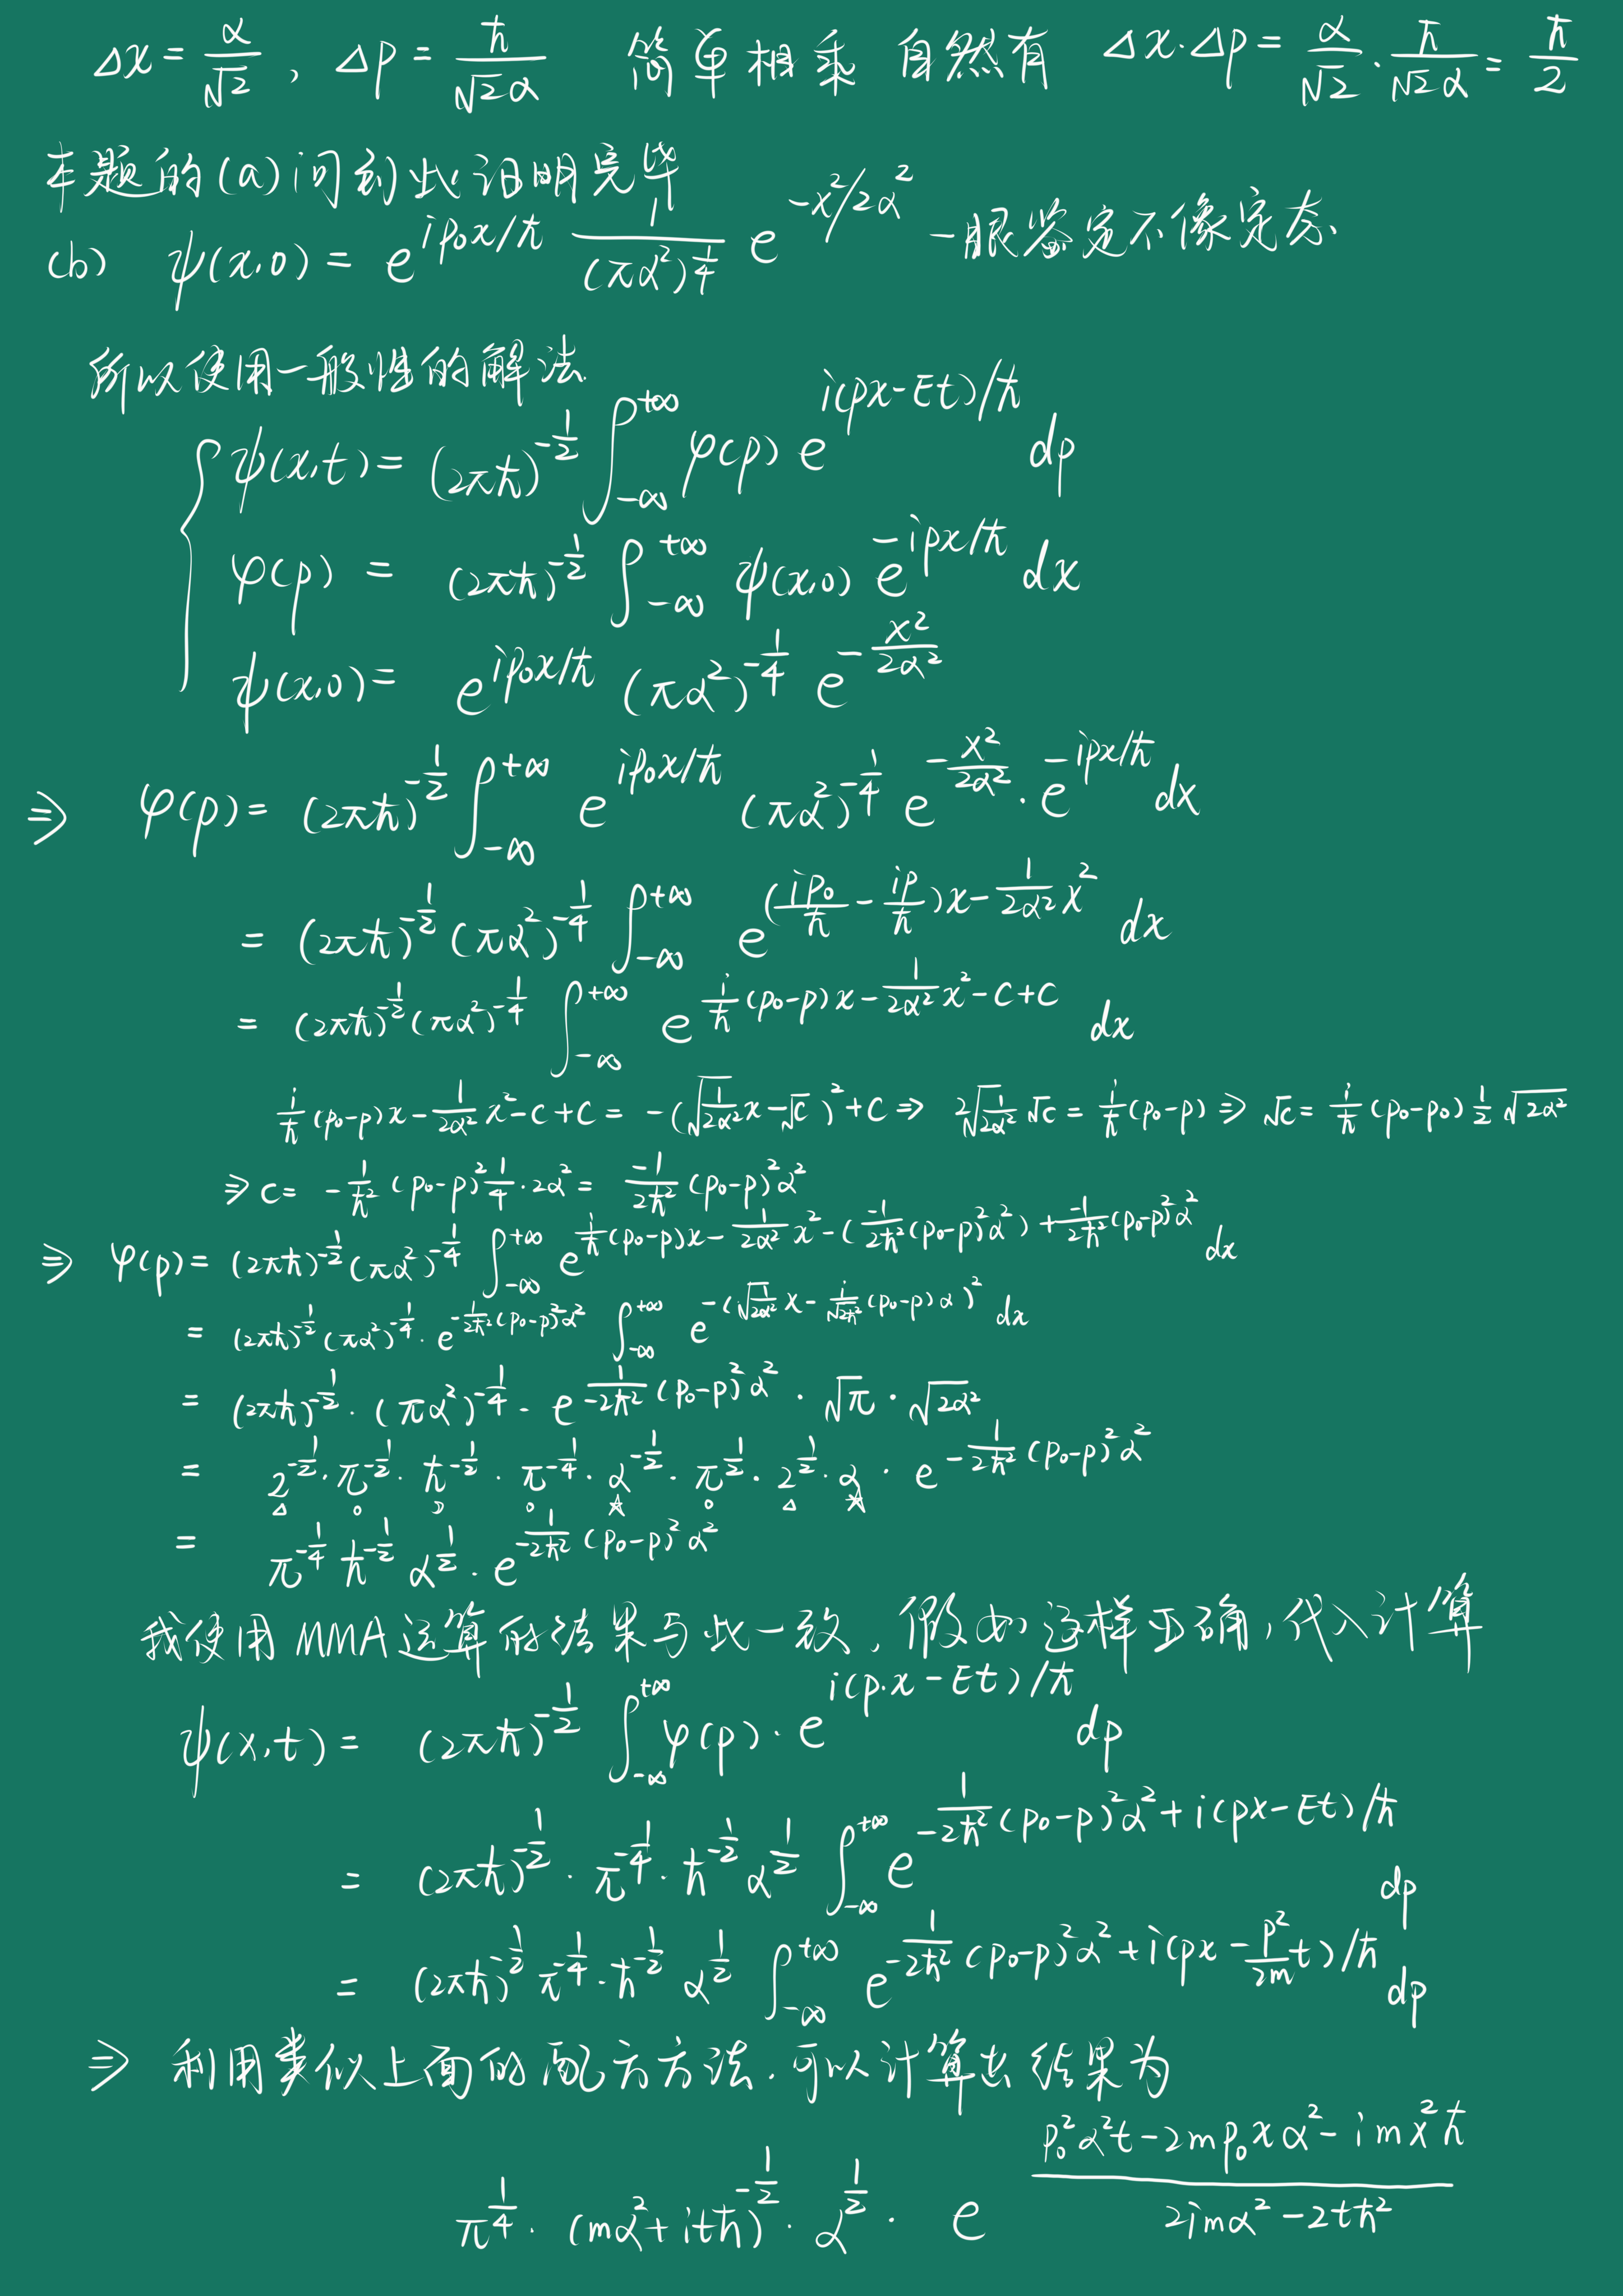 Δx = α/√2 , Δp = ℏ/(√2α) 简单相乘 自然有 Δx·Δp = α/√2 · ℏ/(√2α) = ℏ/2
本题的(a)问到此证明完毕
(b) ψ(x,0) = e^{ip₀x/ℏ} 1/(πα²)^{1/4} e^{-x²/2α²} 一眼鉴定不像定态、
所以使用一般性的解法.
{ ψ(x,t) = (2πℏ)^{-1/2} ∫_{-∞}^{+∞} φ(p) e^{i(px-Et)/ℏ} dp
φ(p) = (2πℏ)^{-1/2} ∫_{-∞}^{+∞} ψ(x,0) e^{-ipx/ℏ} dx
ψ(x,0) = e^{ip₀x/ℏ} (πα²)^{-1/4} e^{-x²/2α²}
⇒ φ(p) = (2πℏ)^{-1/2} ∫_{-∞}^{+∞} e^{ip₀x/ℏ} (πα²)^{-1/4} e^{-x²/2α²} · e^{-ipx/ℏ} dx
= (2πℏ)^{-1/2} (πα²)^{-1/4} ∫_{-∞}^{+∞} e^{(ip₀/ℏ - ip/ℏ)x - (1/2α²)x²} dx
= (2πℏ)^{-1/2} (πα²)^{-1/4} ∫_{-∞}^{+∞} e^{(i/ℏ)(p₀-p)x - (1/2α²)x² - C + C} dx
(i/ℏ)(p₀-p)x - (1/2α²)x² - C + C = -(√(1/2α²) x - √C)² + C ⇒ 2√(1/2α²) √C = (i/ℏ)(p₀-p) ⇒ √C = (i/ℏ)(p₀-p₀) (1/2) √(2α²)
⇒ C = -(1/ℏ²)(p₀-p)² (1/4)·2α² = (-1/2ℏ²)(p₀-p)²α²
⇒ φ(p) = (2πℏ)^{-1/2} (πα²)^{-1/4} ∫_{-∞}^{+∞} e^{(i/ℏ)(p₀-p)x - (1/2α²)x² - ((-1/2ℏ²)(p₀-p)²α²) + (-1/2ℏ²)(p₀-p)²α²} dx
= (2πℏ)^{-1/2} (πα²)^{-1/4} · e^{-(1/2ℏ²)(p₀-p)²α²} ∫_{-∞}^{+∞} e^{-(√(1/2α²) x - (i/√(2ℏ²))(p₀-p)α)²} dx
= (2πℏ)^{-1/2} · (πα²)^{-1/4} · e^{(1/-2ℏ²)(p₀-p)²α²} · √π · √(2α²)
= 2^{-1/2} · π^{-1/2} · ℏ^{-1/2} · π^{-1/4} · α^{-1/2} · π^{1/2} · 2^{1/2} · α · e^{-(1/2ℏ²)(p₀-p)²α²}
= π^{-1/4} ℏ^{-1/2} α^{1/2} · e^{(1/-2ℏ²)(p₀-p)²α²}
我使用MMA运算的结果与此一致，假如这样正确，代入计算
ψ(x,t) = (2πℏ)^{-1/2} ∫_{-∞}^{+∞} φ(p) · e^{i(p·x-Et)/ℏ} dp
= (2πℏ)^{-1/2} · π^{-1/4} · ℏ^{-1/2} α^{1/2} ∫_{-∞}^{+∞} e^{(1/-2ℏ²)(p₀-p)²α² + i(px-Et)/ℏ} dp
= (2πℏ)^{-1/2} π^{-1/4} · ℏ^{-1/2} α^{1/2} ∫_{-∞}^{+∞} e^{(1/-2ℏ²)(p₀-p)²α² + i(px - (p²/2m)t)/ℏ} dp
⇒ 利用类似上面的配方方法.可以计算出结果为
π^{1/4} · (mα²+itℏ)^{-1/2} · α^{1/2} · e^{(p₀²α²t - 2mp₀xα² - imx²ℏ)/(2imα² - 2tℏ²)}